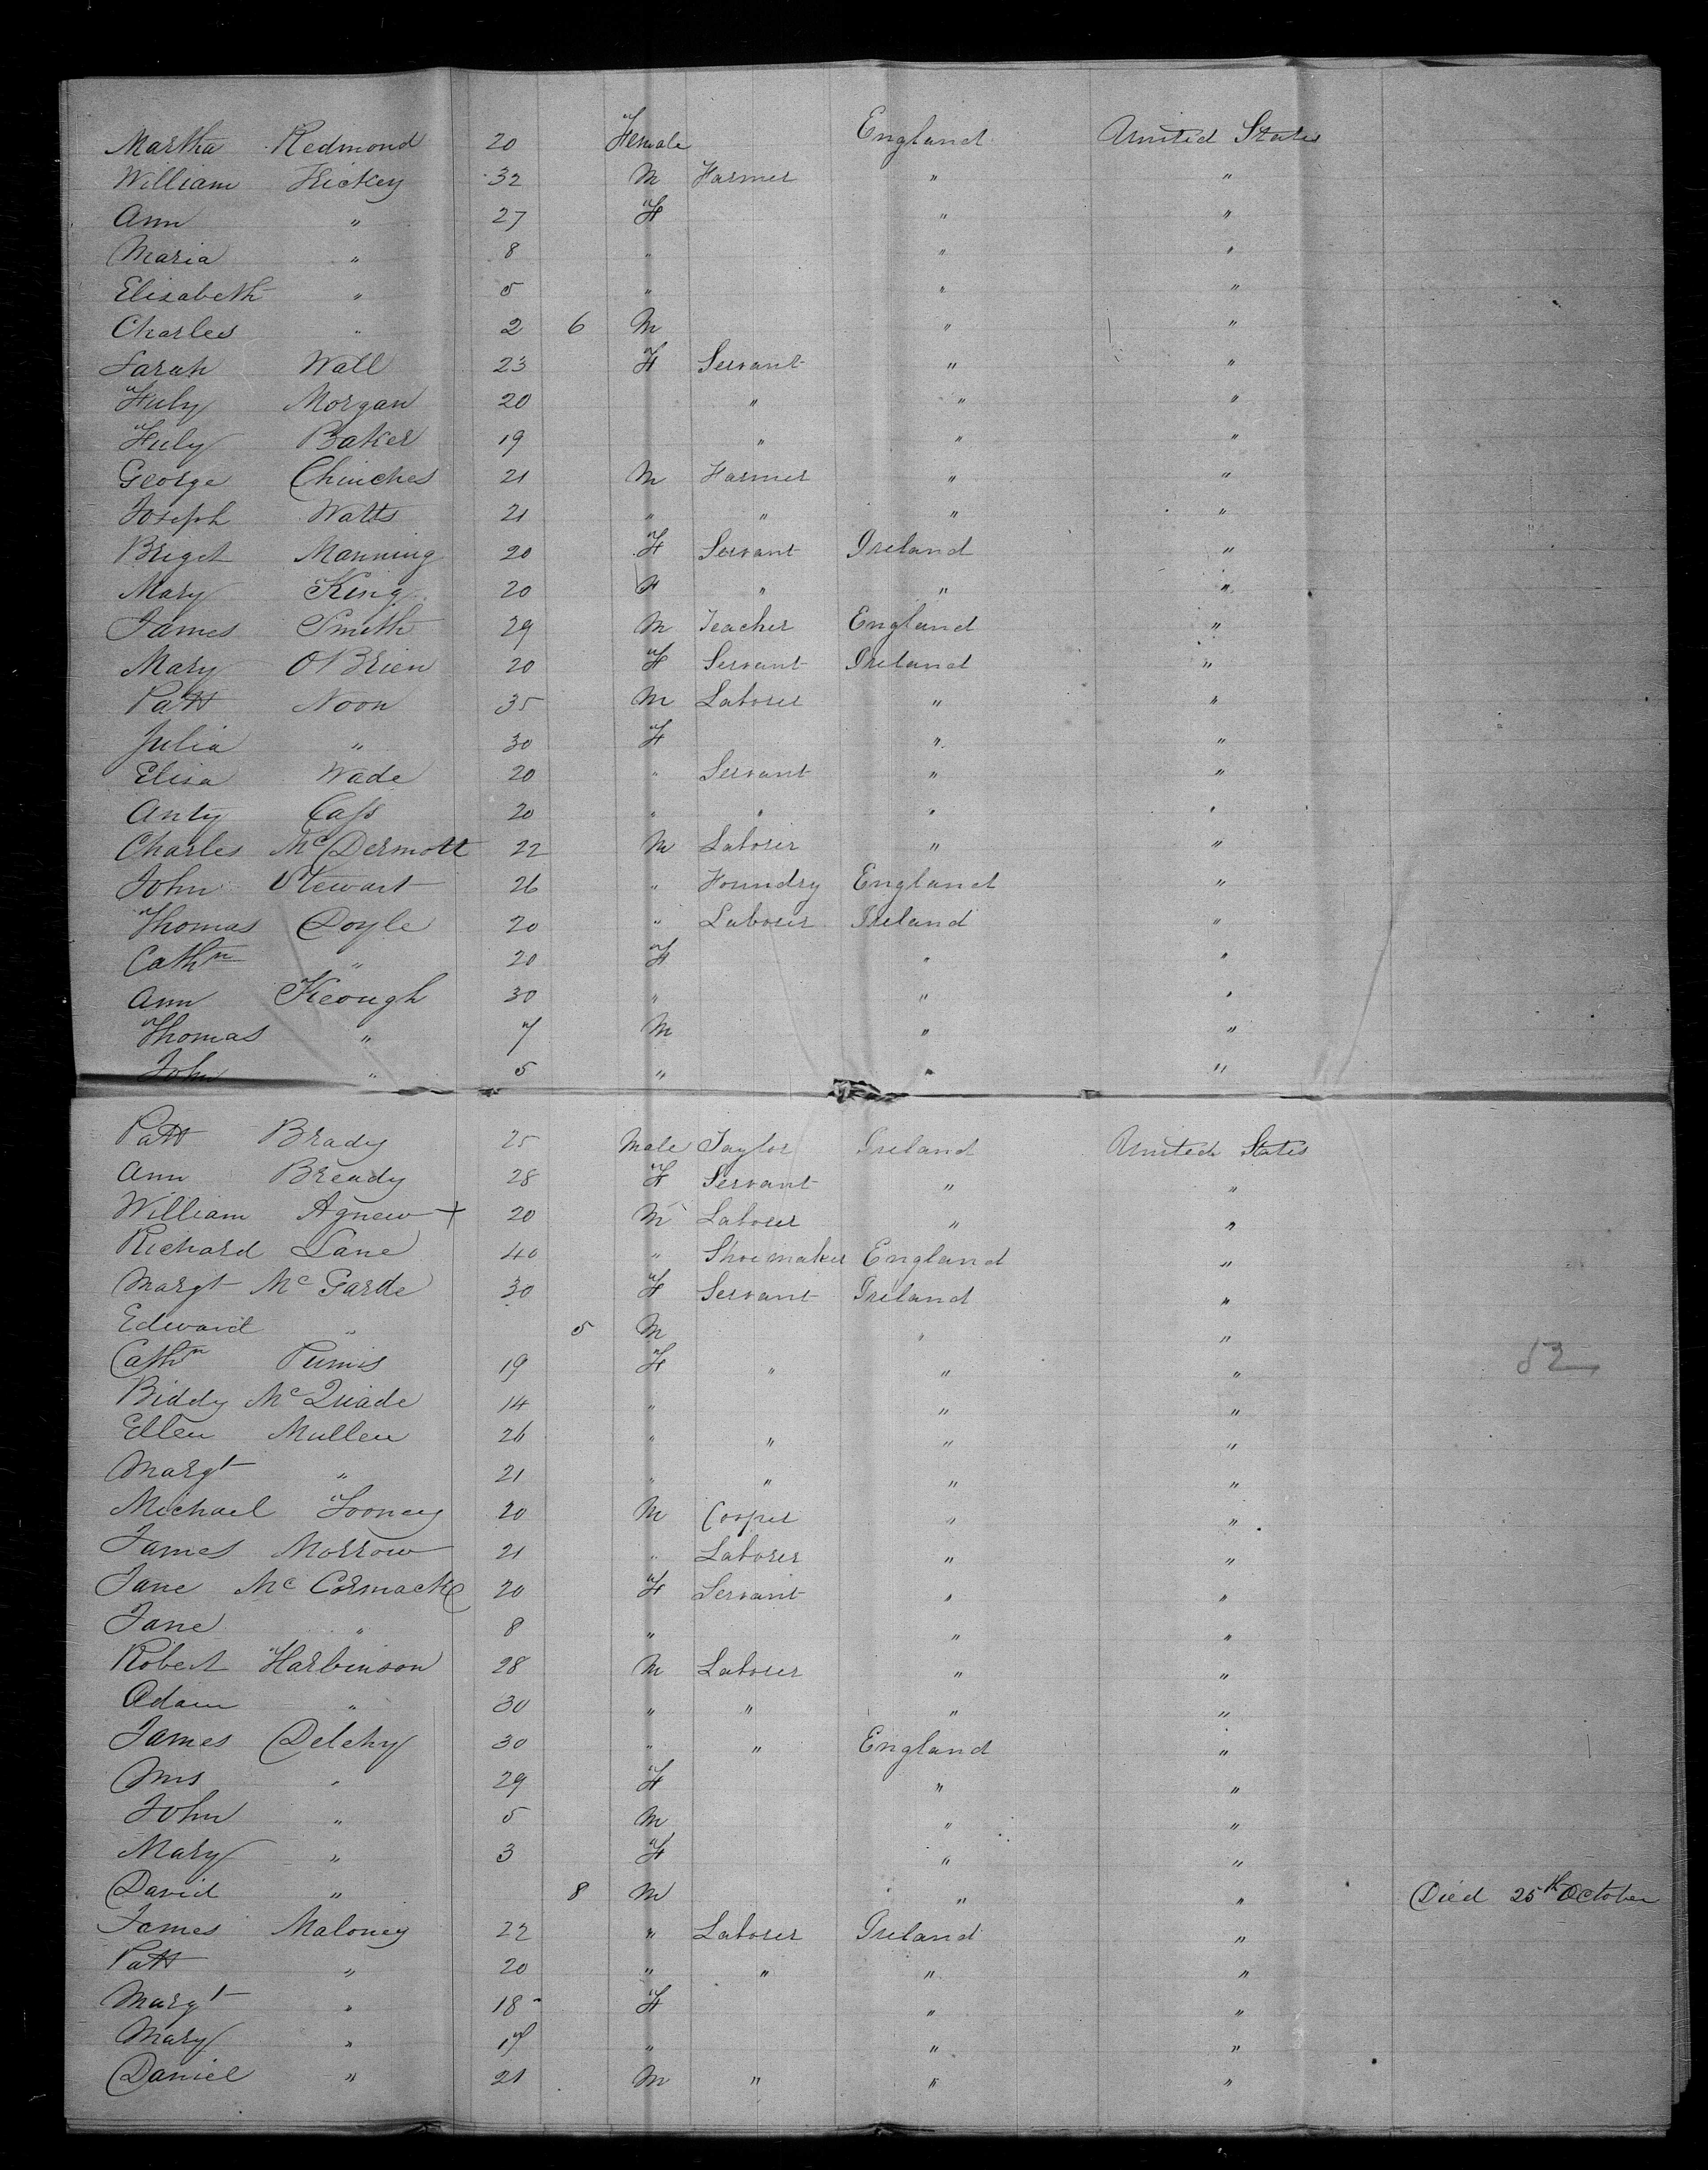 Martha Redmond 20 Female England United States
William Hickey 32 M Farmer " "
Ann " 27 F " "
Maria " 8 " " "
Elisabeth " 5 " " "
Charles " 2 6 M " "
Sarah Wall 23 F Servant " "
July Morgan 20 " " "
July Baker 19 " " "
George Chinches 21 M Farmer " "
Joseph Watts 21 " " " "
Briget Manning 20 F Servant Ireland "
Mary King 20 F " " "
James Smith 29 M Teacher England "
Mary OBrien 20 F Servant Ireland "
Patt Noon 35 M Laborer " "
Julia " 30 F " "
Elisa Wade 20 " Servant " "
Anty Cass 20 " " " "
Charles McDermott 22 M Laborer " "
John Stewart 26 " Foundry England "
Thomas Doyle 20 " Laborer Ireland "
Cathn " 20 F " "
Ann Keough 30 " " "
Thomas " 7 M " "
John " 5 " " "
Patt Brady 25 Male Taylor Ireland United States
Ann Bready 28 F Servant " "
William Agnew + 20 M Laborer " "
Richard Lane 40 " Shoemaker England "
Margt Mc Garde 30 F Servant Ireland "
Edward " 5 M " "
Cathn 19 F " " " 52
Biddy McQuade 14 " " "
Ellen Mullen 26 " " " "
Margt " 21 " " " "
Michael Tooney 20 M Cooper " "
James Morrow 21 " Laborer " "
Jane Mc Cormack 20 F Servant " "
Jane " 8 " " "
Robert Harbinson 28 M Laborer " "
Adam " 30 " " " "
James Delehy 30 " " England "
Mrs " 29 F " "
John " 5 M " "
Mary " 3 F " "
David " 8 M " " Died 25th October
James Maloney 22 " Laborer Ireland "
Patt " 20 " " " "
Margt " 18 F " "
Mary " 17 " " "
Daniel " 21 M " " "